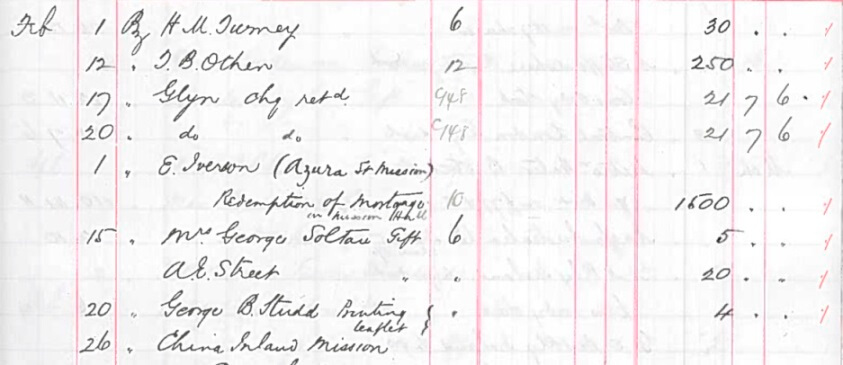 Feb 1 By H. M. Turney 6 30 . .
12 " T. B. Othen 12 250 . .
17 " Glyn chq retd. C148 21 7 6
20 " do do C148 21 7 6
1 " E. Iverson (Azura St Mission)
Redemption of Mortgage 10 1500 . .
in Mission Hall
15 " Mrs George Soltau Gift 6 5 . .
A. E. Street " " 20 . .
20 " George B. Studd Printing " 4 . .
leaflet
26 " China Inland Mission